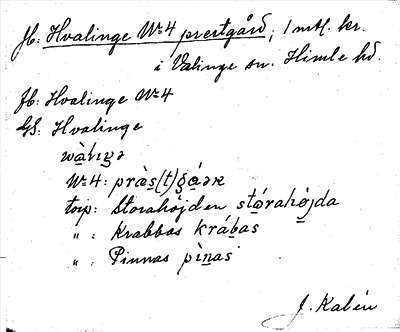 Jb: Hvalinge No 4 prestgård, 1 mtl. kr.
i Valinge sn. Himle hd.
Jb: Hvalinge No 4
GS: Hvalinge
wàlıŋə
No 4: pràs(t)gáər
torp: Storahöjden stórahöjda
" : Krabbas krábas
" : Pinnas pìnas
J. Kalén